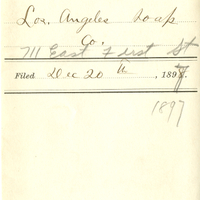 Los. Angeles Soap
Co.
711 East First St
Filed Dec 20 th, 1897.
1897